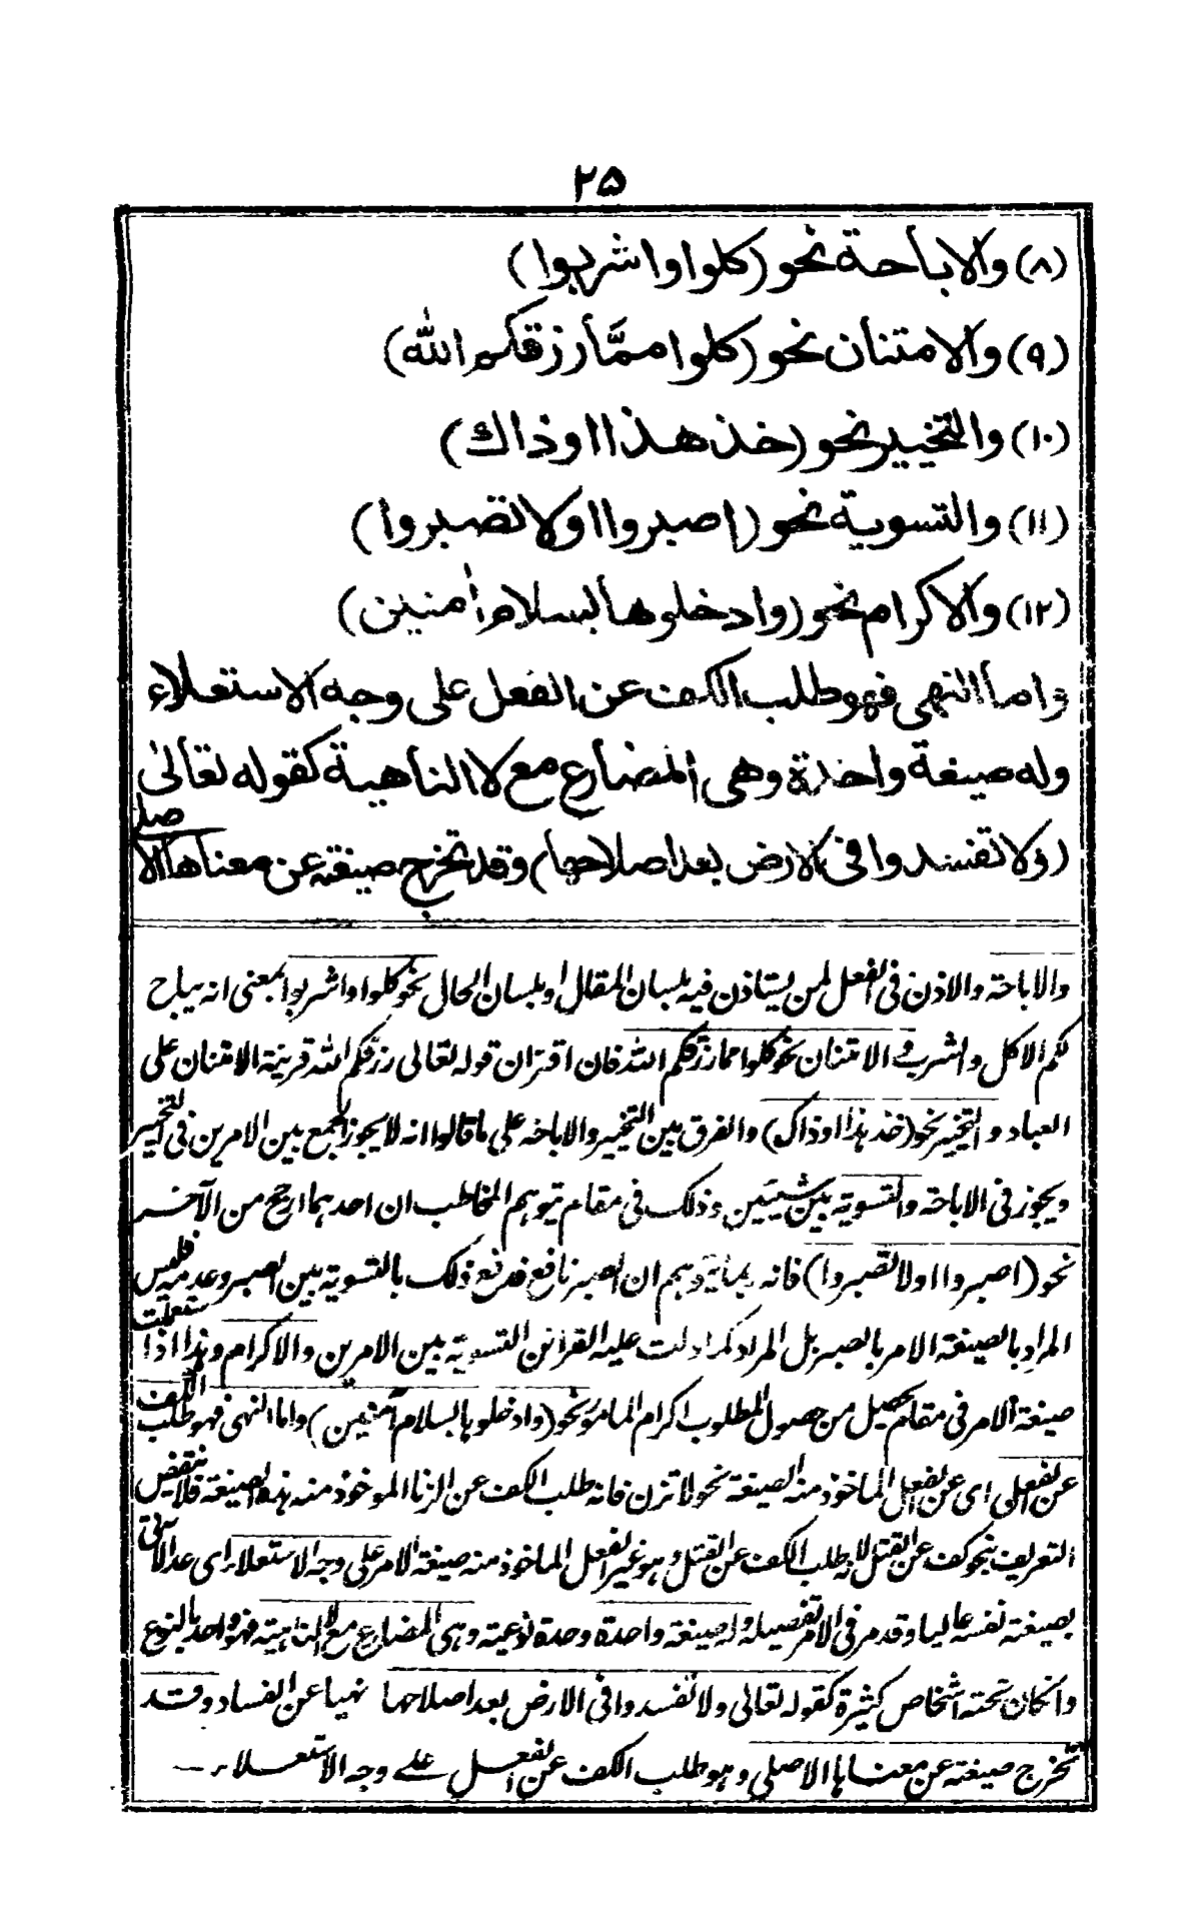 ٢٥
(٨) والاباحة نحو (كلوا واشربوا)
(٩) والامتنان نحو (كلوا ممّا رزقكم الله)
(١٠) والتخيير نحو (خذ هذا او ذاك)
(١١) والتسوية نحو (اصبروا او لا تصبروا)
(١٢) والاكرام نحو (وادخلوها بسلام اٰمنين)
واما النهى فهو طلب الكف عن الفعل على وجه الاستعلاء
وله صيغة واحدة وهى المضارع مع لا الناهية كقوله تعالىٰ
(ولا تفسدوا فى الارض بعد اصلاحها) وقد تخرج صيغته عن معناها الاصلى
والاباحة والاذن فى الفعل لمن يستاذن فيه بلسان المقال او بلسان الحال نحو كلوا واشربوا بمعنى انه يباح
لكم الاكل والشرب و الامتنان نحو كلوا مما رزقكم الله فان اقتران قوله تعالى رزقكم الله قرينة الامتنان على
العباد و التخيير نحو (خذ هذا او ذاك) والفرق بين التخيير والاباحة على ما قالوا انه لا يجوز الجمع بين الامرين فى التخيير
ويجوز فى الاباحة والتسوية بين شيئين وذلك فى مقام يتوهم المخاطب ان احدهما ارجح من الآخر
نحو (اصبروا او لا تصبروا) فانه ربما يتوهم ان الصبر نافع فدفع ذلك بالتسوية بين الصبر وعدمه فليس
المراد بالصيغة الامر بالصبر بل المراد كما دلت عليه القرائن التسوية بين الامرين والاكرام وهذا اذا استعملت
صيغة الامر فى مقام تحصيل من حصول المطلوب اكرام المامور نحو (وادخلوها بسلام آمنين) واما النهى فهو طلب الكف
عن الفعل اى عن الفعل الماخوذ منه الصيغة نحو لا تزن فانه طلب الكف عن الزنا الموخوذ منه هذه الصيغة فلا ينتقض
التعريف بنحو كف عن القتل لانه طلب الكف عن القتل وهو غير الفعل الماخوذ منه صيغة الامر على وجه الاستعلاء اى عد الآتى
بصيغته نفسه عاليا وقد مر فى الامر تفصيله وله صيغة واحدة وحدة نوعية وهى المضارع مع لا الناهية فهو واحد بالنوع
وانكان تحته اشخاص كثيرة كقوله تعالى ولا تفسدوا فى الارض بعد اصلاحها نهيا عن الفساد وقد
تخرج صيغته عن معناها الاصلى وهو طلب الكف عن الفعل على وجه الاستعلاء